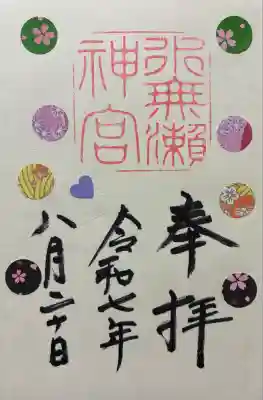 水無瀬
神宮
奉拝
令和七年
八月二十日